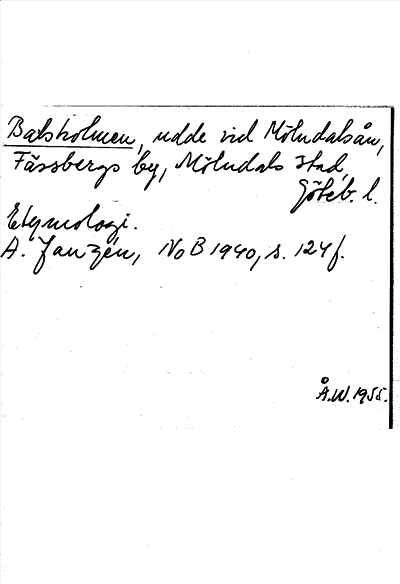 Balsholmen, udde vid Mölndalsån,
Fässbergs by, Mölndals stad,
Göteb. l.
Etymologi.
A. Janzén, NoB 1940, s. 124 f.
Å.W. 1955.